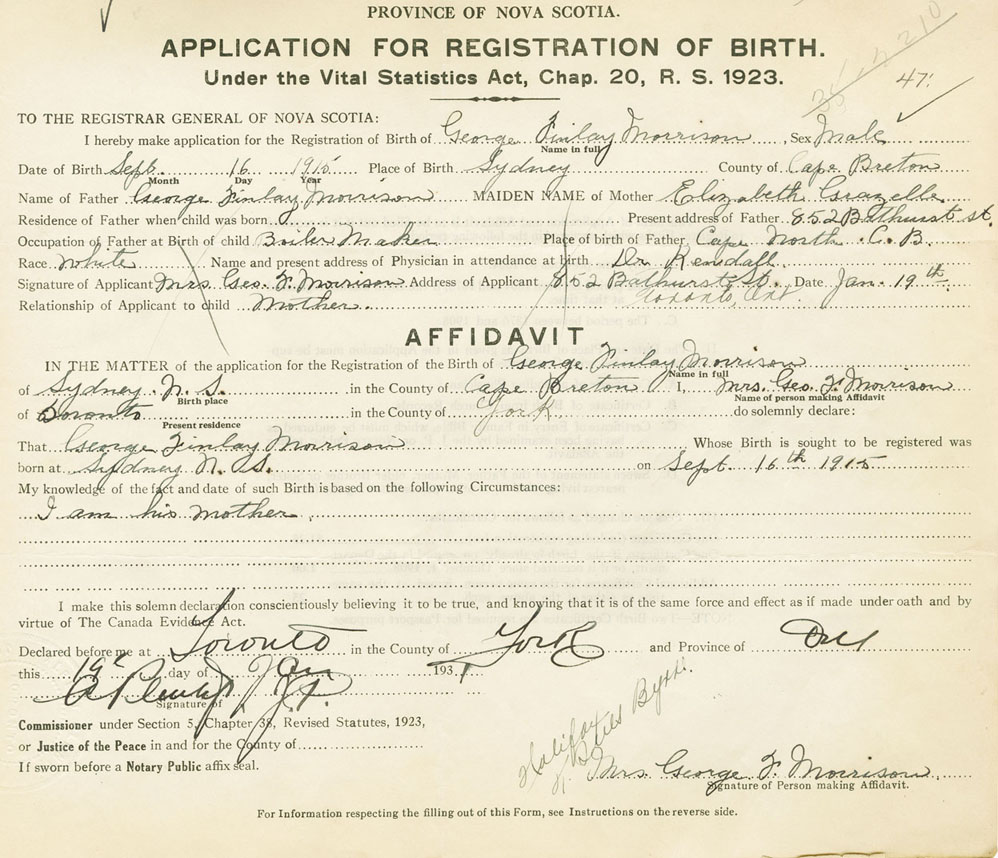 PROVINCE OF NOVA SCOTIA.
APPLICATION FOR REGISTRATION OF BIRTH.
Under the Vital Statistics Act, Chap. 20, R. S. 1923.
47.
TO THE REGISTRAR GENERAL OF NOVA SCOTIA:
I hereby make application for the Registration of Birth of George Finlay Morrison, Sex Male
Name in full
Date of Birth Sept. 16 1915 Place of Birth Sydney County of Cape Breton
Month Day Year
Name of Father George Finlay Morrison MAIDEN NAME of Mother Elizabeth Grazelle
Residence of Father when child was born Present address of Father 852 Bathurst st.
Occupation of Father at Birth of child Boiler Maker Place of birth of Father Cape North C. B.
Race White Name and present address of Physician in attendance at birth Dr Kendall
Signature of Applicant Mrs Geo. F. Morrison Address of Applicant 852 Bathurst St. Date Jan. 19th
Toronto, Ont.
Relationship of Applicant to child Mother
AFFIDAVIT
IN THE MATTER of the application for the Registration of the Birth of George Finlay Morrison
Name in full
of Sydney N. S. in the County of Cape Breton I, Mrs. Geo. F. Morrison
Birth place Name of person making Affidavit
of Toronto in the County of York do solemnly declare:
Present residence
That George Finlay Morrison Whose Birth is sought to be registered was
born at Sydney N. S. on Sept. 16th 1915
My knowledge of the fact and date of such Birth is based on the following Circumstances:
I am his mother
I make this solemn declaration conscientiously believing it to be true, and knowing that it is of the same force and effect as if made under oath and by
virtue of The Canada Evidence Act.
Declared before me at Toronto in the County of York and Province of Ont
this 19 day of Jan 193
Signature of
Commissioner under Section 5, Chapter 38, Revised Statutes, 1923,
or Justice of the Peace in and for the County of
If sworn before a Notary Public affix seal.
Halifax
Mrs. George F. Morrison
Signature of Person making Affidavit.
For Information respecting the filling out of this Form, see Instructions on the reverse side.